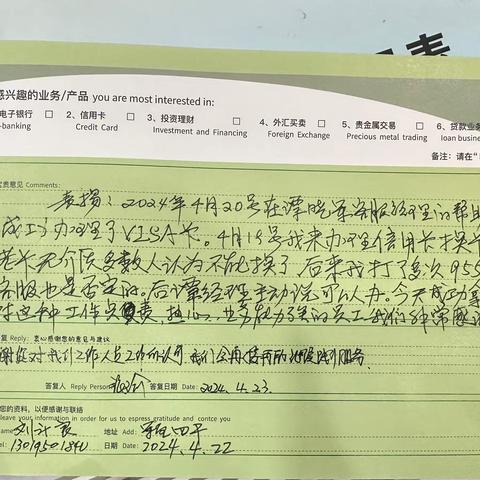 感兴趣的业务/产品 you are most interested in:
电子银行 □ 2、信用卡 □ 3、投资理财 □ 4、外汇买卖 □ 5、贵金属交易 □ 6、贷款业务
e-banking Credit Card Investment and Financing Foreign Exchange Precious metal trading loan business
备注：请在“
贵意见 Comments:
表扬：2024年4月20号在谭晓军客服经理的帮助
成功办理了VISA卡。4月19号我来办理信用卡换卡
老卡无介质多数人认为不能换了 后来我打了多次955
客服也是否定的。后谭经理主动说可以办。今天成功
这种工作负责，热心，业务能力强的员工我们非常
复 Reply: 衷心感谢您的意见与建议
谢您对我们工作人员工作的认可，我们会再接再厉 服务。
答复人 Reply Person 答复日期 Date: 2024.4.23.
您的资料，以便感谢与联络
leave your information in order for us to espress gratitude and contce you
Name 刘 地址 Add: 四平
Tel: 日期 Date: 2024.4.22